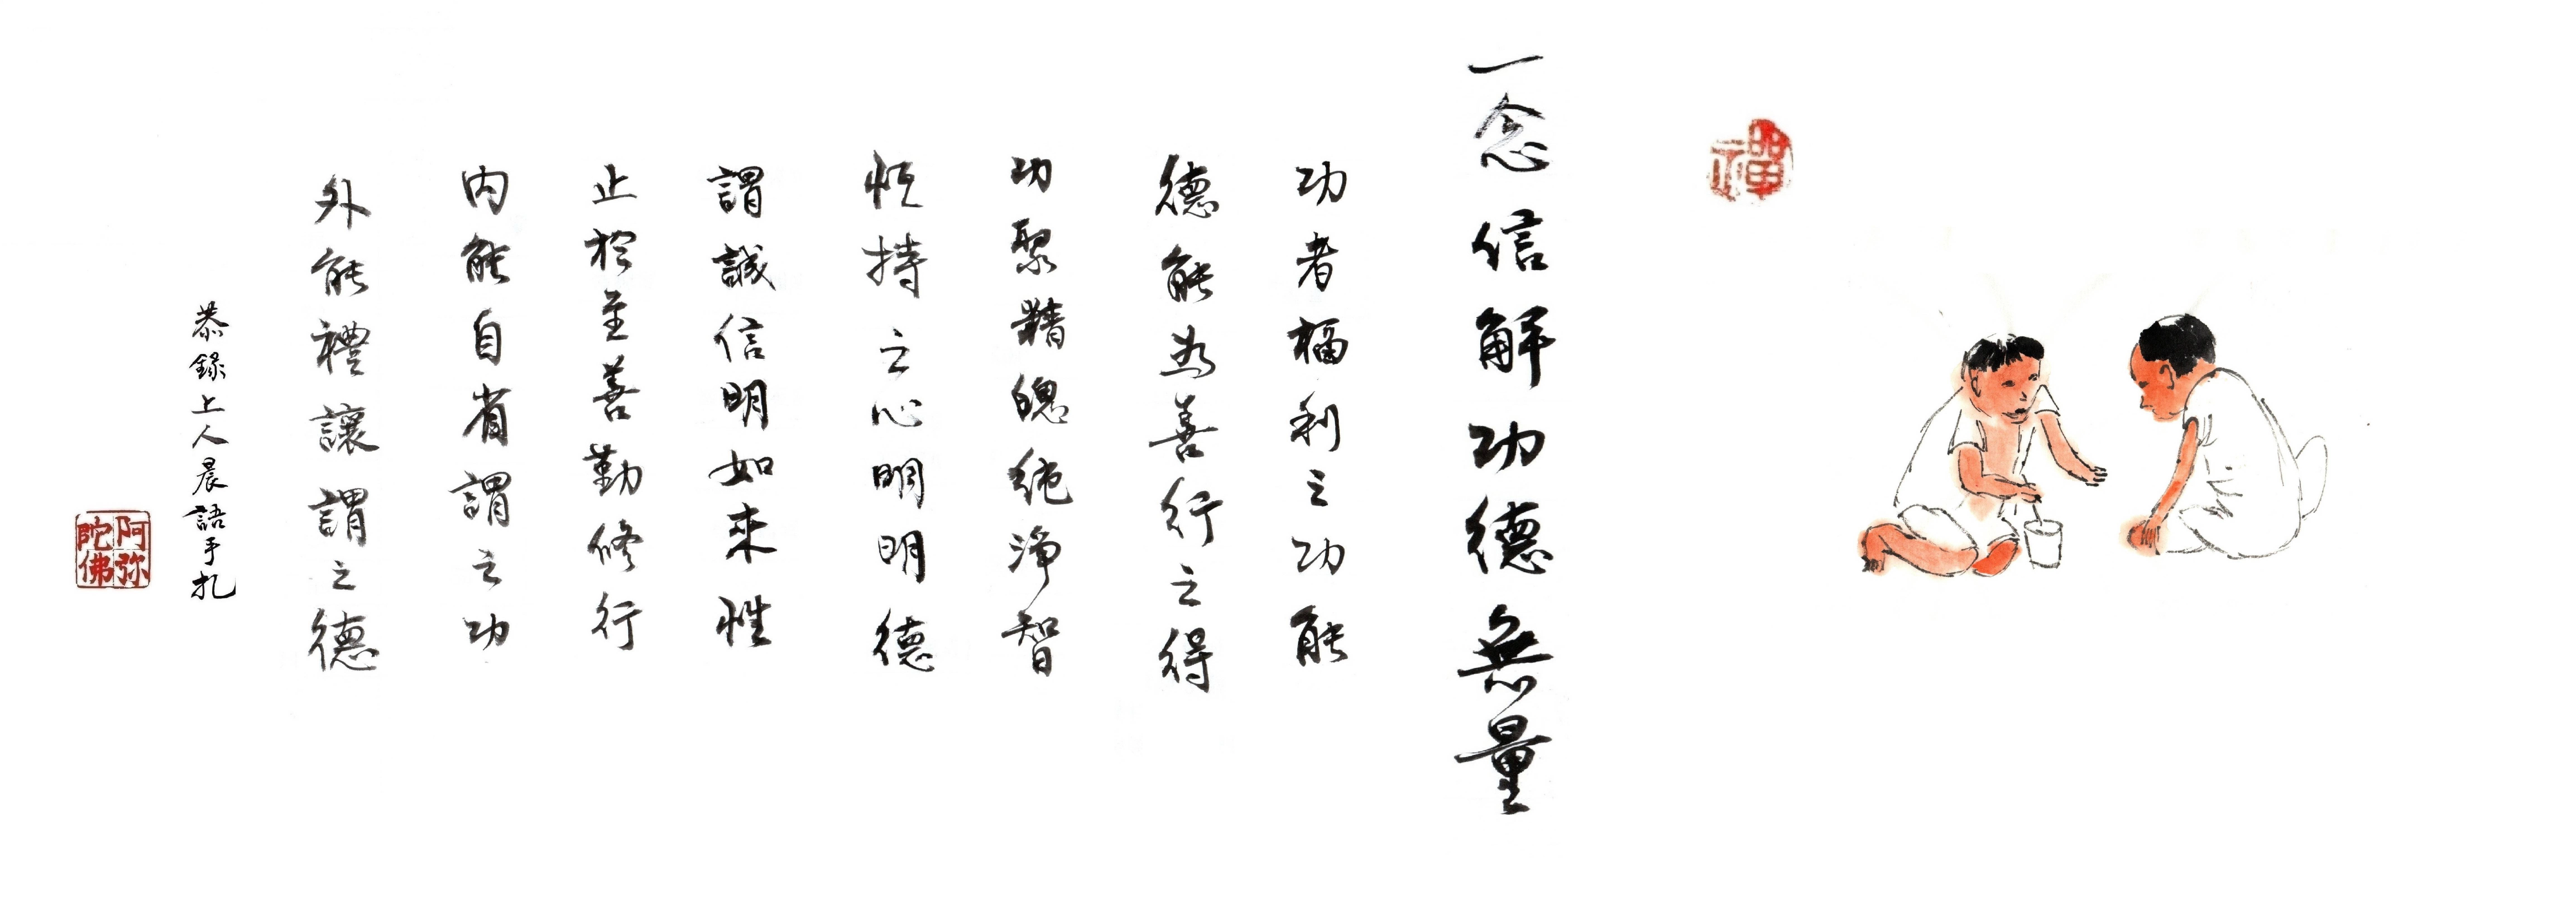 禪
一念信解功德無量
功者福利之功能
德能為善行之得
功聚精魄純淨智
恒持之心明明德
謂誠信明如來性
止於至善勤修行
內能自省謂之功
外能禮讓謂之德
恭錄上人晨語手扎
阿弥陀佛